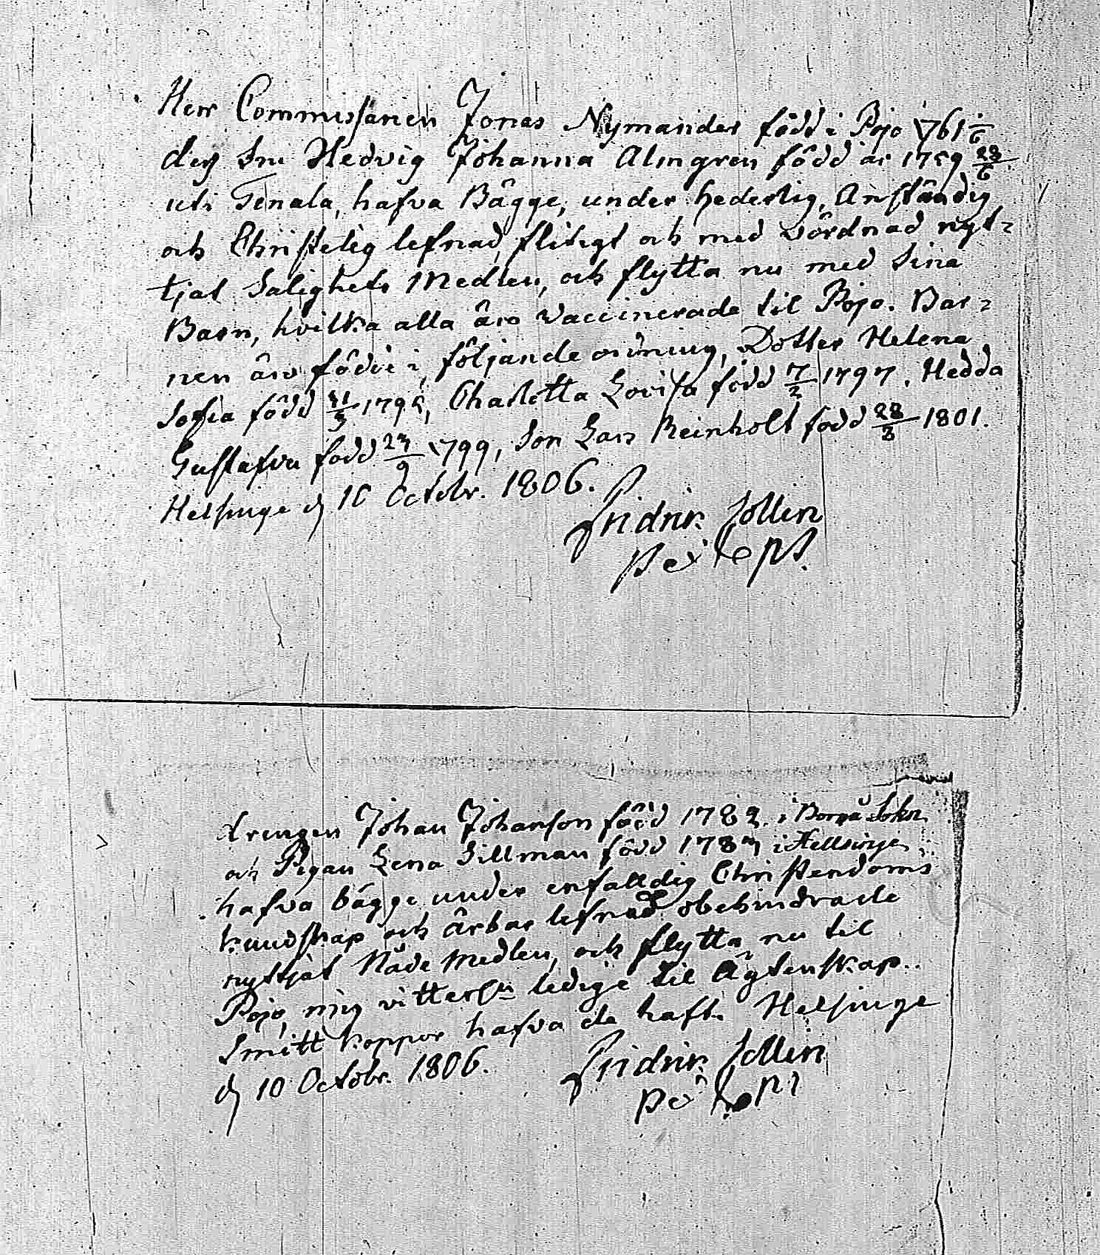 Herr Commissarien Jonas Nymander född i Pojo 1761
dess Fru Hedvig Johanna Almgren född år 1759 28/6
uti Tenala, hafva Bägge, under hederlig, Anständig
och Christelig lefnad, flitigt och med vördnad nyt-
tjat Salighets Medlen, och flytta nu med sina
Barn, hvilka alla äro vaccinerade til Pojo. Bar-
nen äro födde i följande ordning, Dotter Helena
Sofia född 31/3 1795, Charlotta Lovisa född 7/2 1797. Hedda
Gustafva född 27/9 1799, Son Lars Reinholt född 28/8 1801.
Helsinge d 10 Octobr. 1806.
Fridric Sollin
drengen Johan Johanson född 1782 i Borgå Sokn
och Pigan Lena Sillman född 1787 i Hellsinge,
hafva bägge under enfaldig Christendoms
kundskap och ärbar lefnad obehindrade
nyttjat Nåde Medlen, och flytta nu til
Pojo, mig vitterl:n ledige til Ägtenskap.
Smitt koppor hafva de haft. Helsinge
d 10 Octobr. 1806.
Fridric Sollin